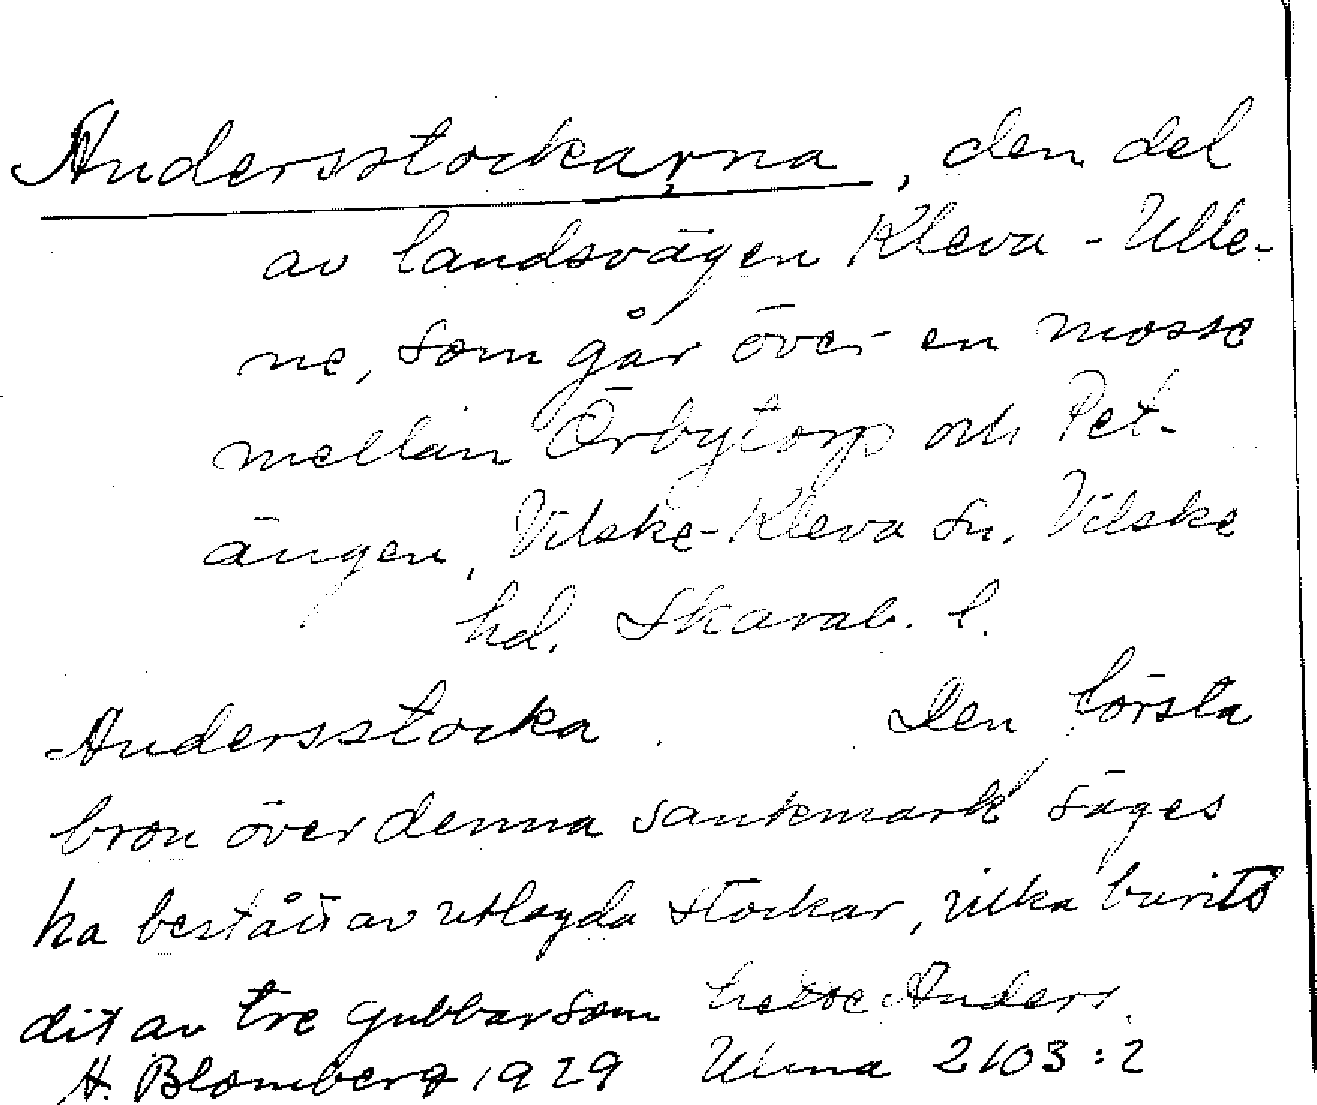 Andersstockarna, den del
av landsvägen Kleva - Ulle-
ne, som går över en mosse
mellan Örbytorp och Pet-
ängen, Vilske-Kleva sn. Vilske
hd. Skarab. l.
Andersstocka. Den första
bron över denna sankmark säges
ha bestått av utlagda stockar, vilka burits
dit av tre gubbar som hette Anders.
H. Blomberg 1929 Ulma 2103:2